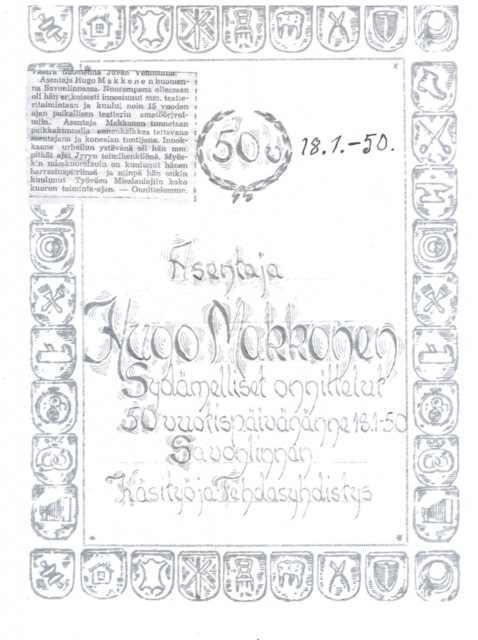 Asentaja Hugo Makkonen kuomen-
na Savonlinnassa. Nuorempana ollessaan
oli hän erikoisesti innostunut mm. teatte-
ritoimintaan ja kuului noin 15 vuoden
ajan paikallisen teatterin amatöörivoi-
miin. Asentaja Makkonen tunnetaan
paikkakunnalla ennenkaikkea taitavana
asentajana ja konealan tuntijana. Innok-
kaana urheilun ystävänä oli hän mm.
pitkät ajat Jyryn toimihenkilönä. Myös-
kin mieskuorolaulu on kuulunut hänen
harrastuspiiriinsä ja niinpä hän onkin
kuulunut Työväen Mieslaulajiin koko
kuoron toiminta-ajan. — Onnittelemme.
50 v 18.1.-50.
Asentaja
Hugo Makkonen
Sydämelliset onnittelut
50 vuotispäivänänne 18.1-50
Savonlinnan
Käsityö ja Tehdasyhdistys